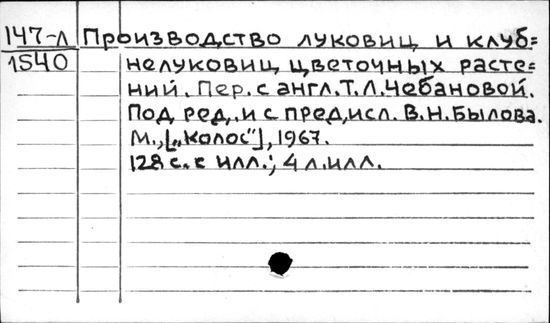 147-л Производство луковиц и клуб=
1540 нелуковиц цветочных расте=
ний. Пер. с англ. Т.Л.Чебановой.
Под ред. и с предисл. В.Н.Былова.
М., [„Колос"], 1967.
128 с. с илл.; 4 л. илл.